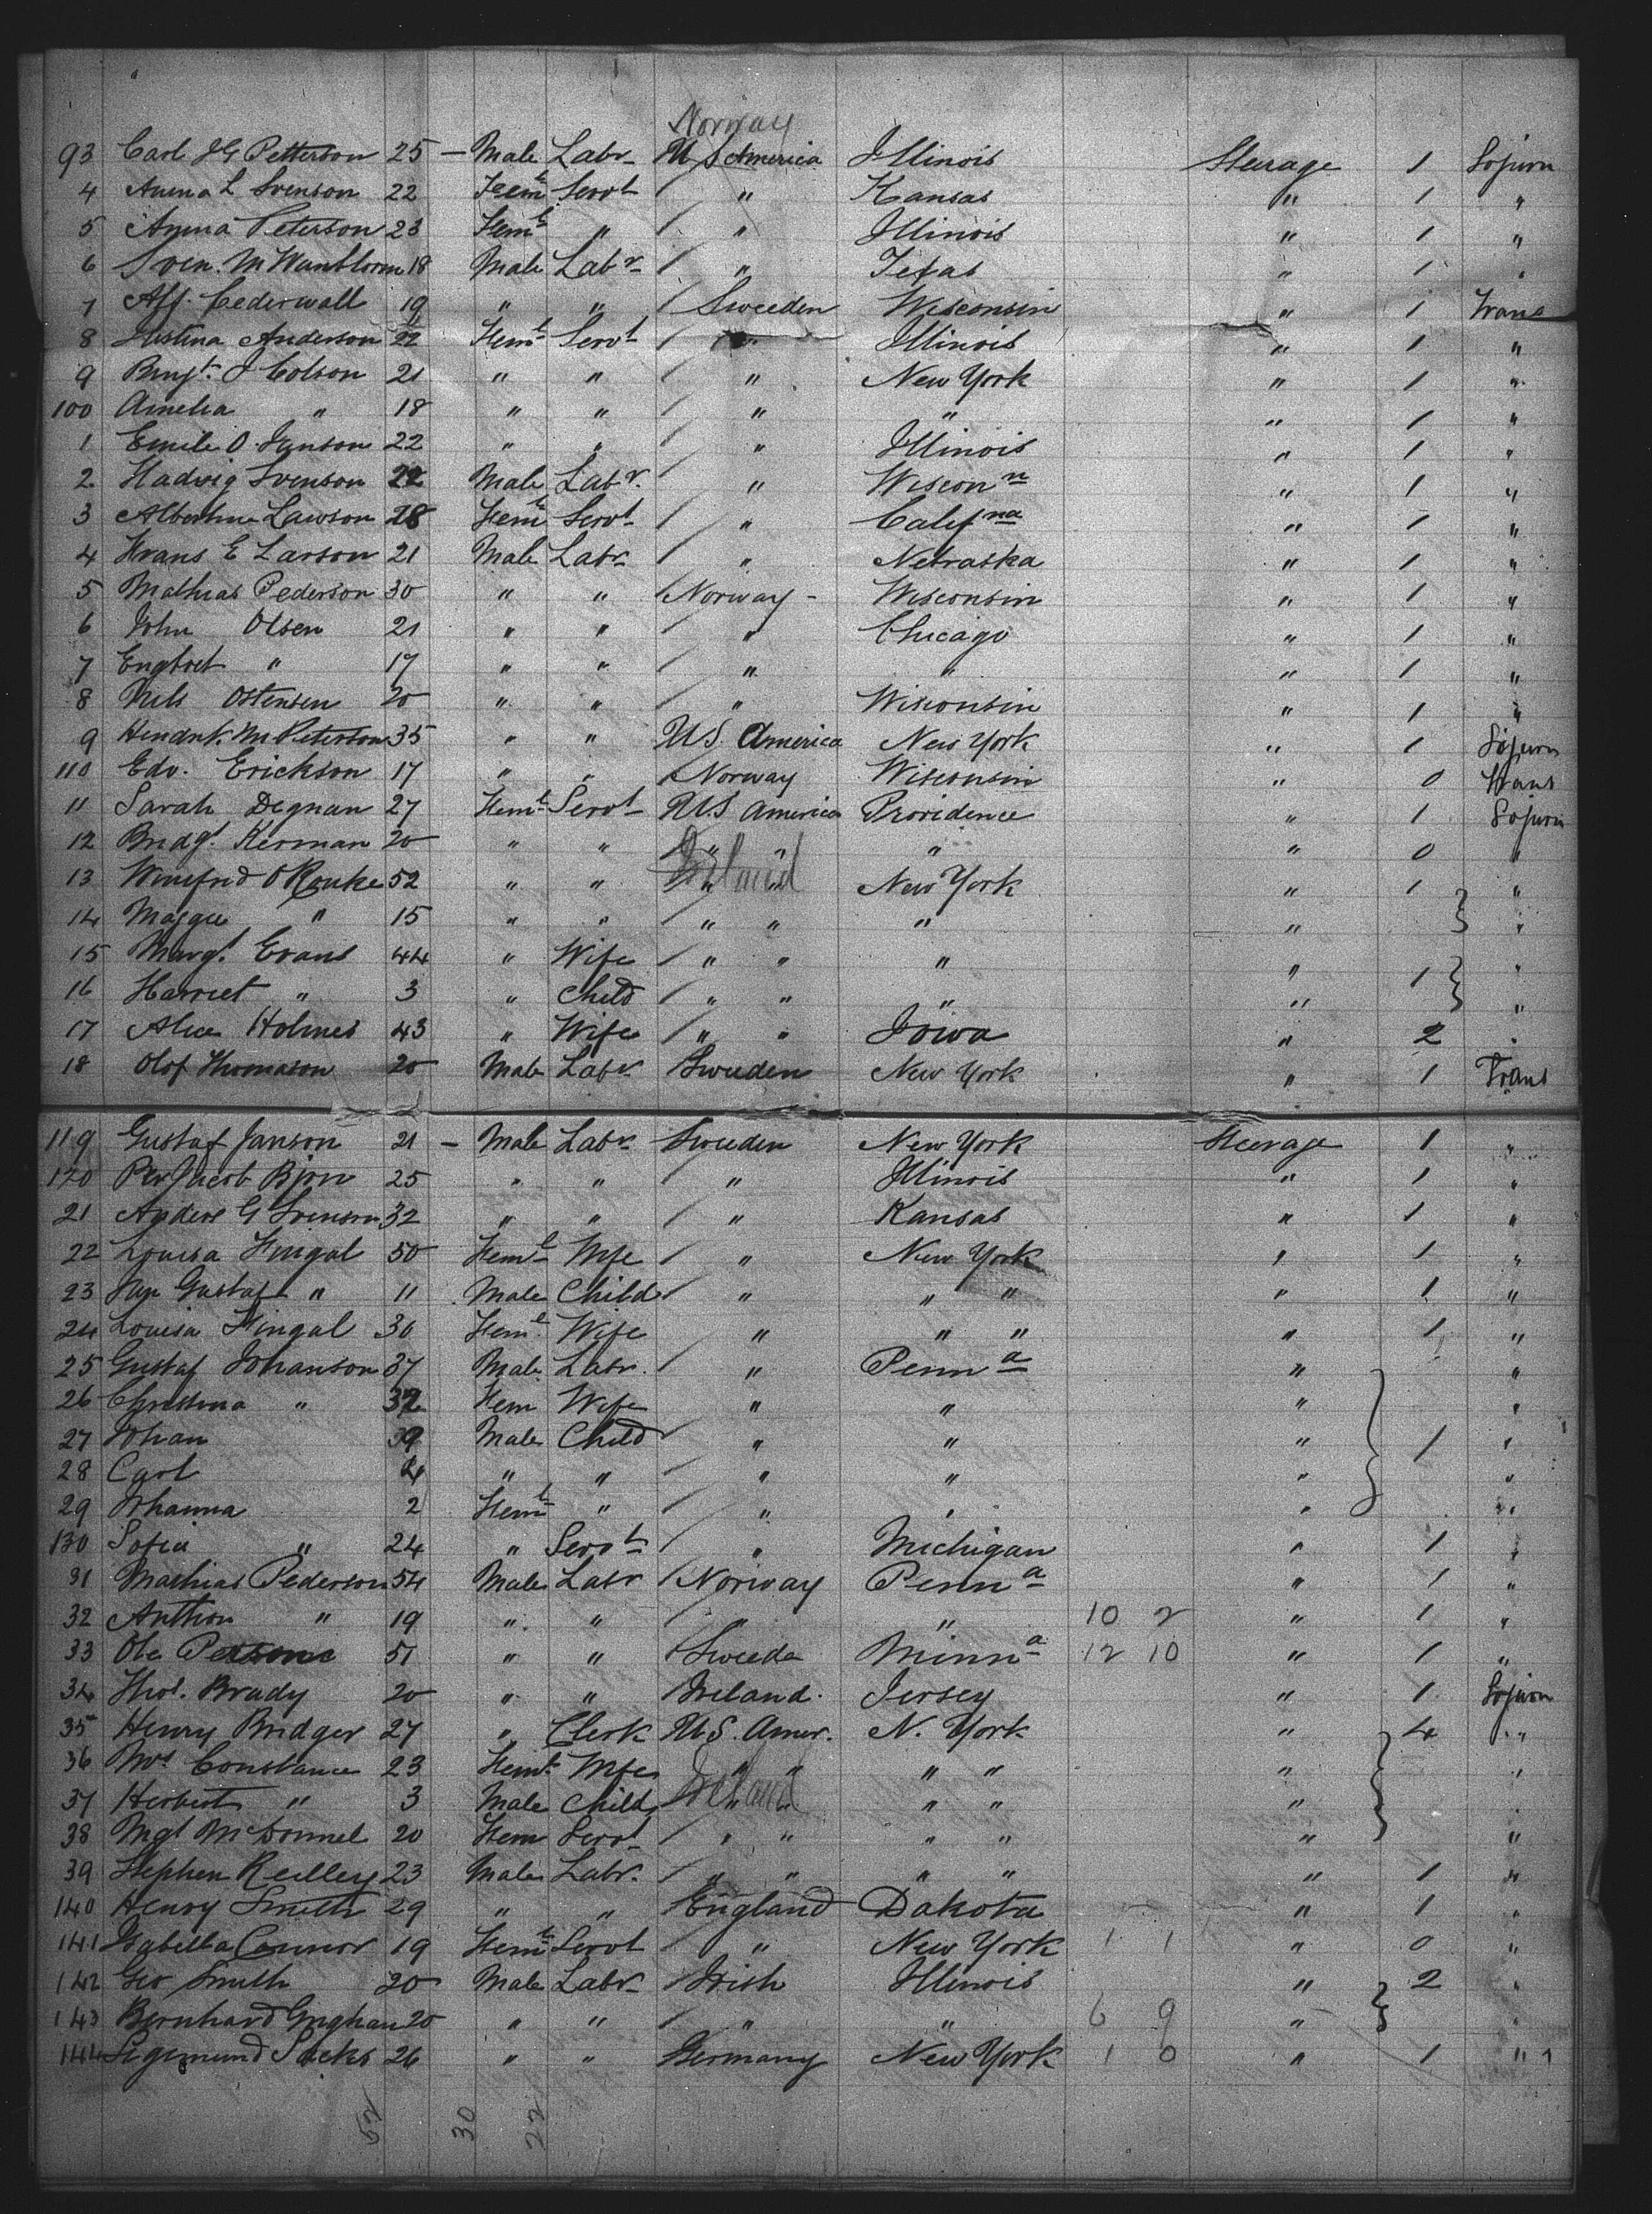 Norway
93 Carl J G Petterson 25 — Male Labr U S America Illinois Steerage 1 Sojurn
4 Anna L Svenson 22 Feml Servt " Kansas " 1 "
5 Anna Peterson 23 Feml " " Illinois " 1 "
6 Sven. M 18 Male Labr " Texas " 1 "
7 Alf. Cederwall 19 " " Sweeden Wisconsin " 1 Trans
8 Justina Anderson 22 Feml Servt " Illinois " 1 "
9 Bengt. J Colson 21 " " " New York " 1 "
100 Amelia " 18 " " " " " 1 "
1 Emile O. Janson 22 " " " Illinois " 1 "
2 Hadvig Svenson 22 Male Labr. " Wisconn " 1 "
3 Albertina Lawson 28 Feml Servt " Califna " 1 "
4 Frans E Larson 21 Male Labr " Nebraska " 1 "
5 Mathias Pederson 30 " " Norway - Wisconsin " 1 "
6 John Olsen 21 " " " Chicago " 1 "
7 Engbret " 17 " " " " " 1 "
8 Nils Ostensen 20 " " " Wisconsin " 1 "
9 Hendrk. M Peterson 35 " " U.S. America New York " 1 Sojurn
110 Edv. Erickson 17 " " Norway Wisconsin " 0 Trans
11 Sarah Degnan 27 Feml Servt U.S America Providence " 1 Sojurn
12 Bridgt. Kernan 20 " " " " " " 0 "
Ireland
13 Winifrid O Rouke 52 " " " " New York " 1 "
14 Maggie " 15 " " " " " " "
15 Margt. Evans 44 " Wife " " " " 1 "
16 Harriet " 3 " Child " " " " "
17 Alice Holmes 43 " Wife " " Iowa " 2 "
18 Olof Thomason 20 Male Labr Sweeden New York " 1 Trans
119 Gustaf Janson 21 — Male Labr Sweeden New York Steerage 1 "
120 Per Jacob Bjorn 25 " " " Illinois " 1 "
21 Anders G Svenson 32 " " " Kansas " 1 "
22 Louisa Fingal 50 Feml Wife " New York " 1 "
23 Gustaf " 11 Male Child " " " " 1 "
24 Louisa Fingal 30 Feml Wife " " " " 1 "
25 Gustaf Johanson 37 Male Labr. " Penna " "
26 Christina " 32 Fem Wife " " " "
27 Johan 9 Male Child " " " 1 "
28 Carl 4 " " " " " "
29 Johanna 2 Feml " " " " "
130 Sofia " 24 " Servt " Michigan " 1 "
31 Mathias Pederson 54 Male Labr Norway Penna " 1 "
32 Anthon " 19 " " " " 10 2 " 1 "
33 Ole 51 " " Sweede Minna 12 10 " 1 "
34 Thos. Brady 20 " " Ireland. Jersey " 1 Sojurn
35 Henry Bridger 27 " Clerk U.S. Amer. N. York " 4 "
36 Mrs Constance 23 Feml Wife " " " " " "
Ireland
37 Herbert " 3 Male Child " " " " " "
38 Mgt McDonnel 20 Fem Servt " " " " " "
39 Stephen Reilley 23 Male Labr. " " " " " 1 "
140 Henry Smith 29 " " England Dakota " 1 "
141 Isabella Connor 19 Feml Servt " New York 1 1 " 0 "
142 Geo Smith 20 Male Labr Irish Illinois " 2 "
143 Bernhard 20 " " " " 6 9 " "
144 Sigemund Sacks 26 " " Germany New York 1 0 " 1 "
52 30 22